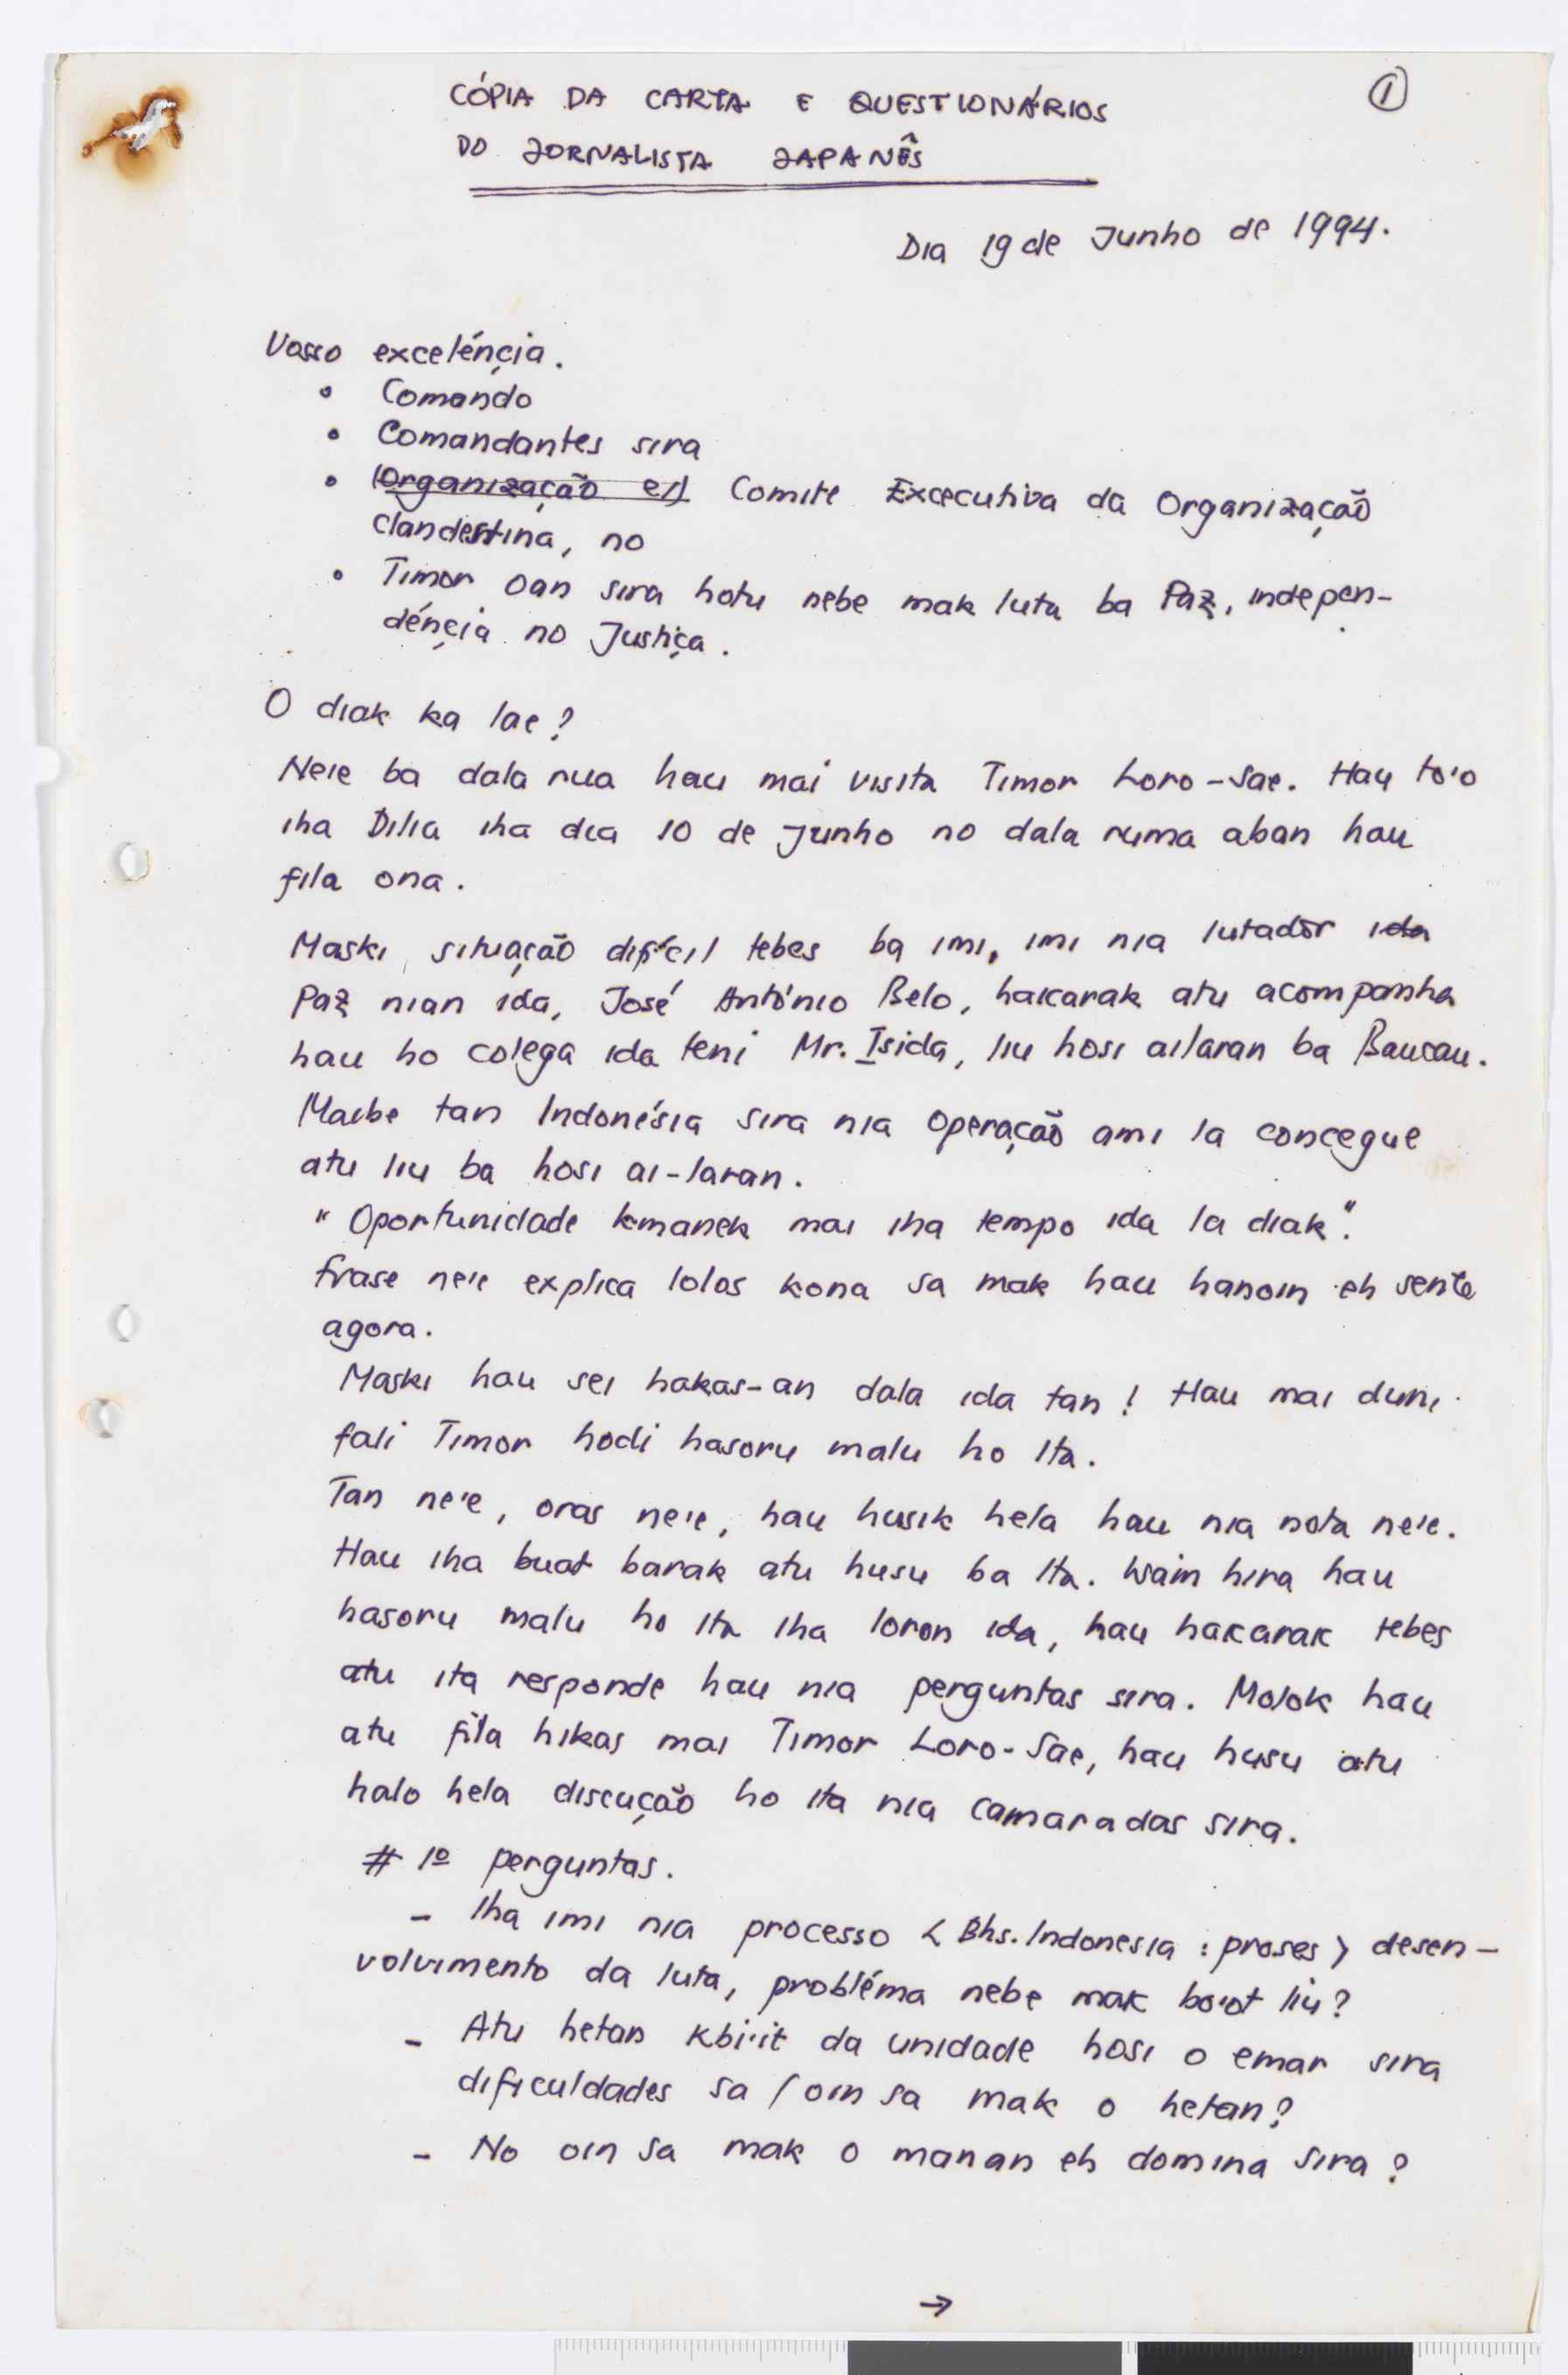 CÓPIA DA CARTA E QUESTIONÁRIOS
DO JORNALISTA JAPANÊS
1
Dia 19 de Junho de 1994.
Vosso exceléncia.
• Comando
• Comandantes sira
• (Organização es) Comite Excecutiva da Organização
clandestina, no
• Timor oan sira hotu nebe mak luta ba Paz, indepen-
déncia no Justiça.
O diak ka lae?
Ne'e ba dala rua hau mai visita Timor Loro-Sae. Hau to'o
iha Dilia iha dia 10 de Junho no dala ruma aban hau
fila ona.
Maski situação difícil tebes ba imi, imi nia lutadór ida
Paz nian ida, José António Belo, hakarak atu acompanha
hau ho colega ida teni Mr. Isida, liu hosi ailaran ba Baucau.
Maibe tan Indonésia sira nia Operação ami la concegue
atu liu ba hosi ai-laran.
"Oportunidade kmanek mai iha tempo ida la diak".
frase ne'e explica lolos kona sa mak hau hanoin eh sente
agora.
Maski hau sei hakas-an dala ida tan! Hau mai duni
fali Timor hodi hasoru malu ho Ita.
Tan ne'e, oras ne'e, hau husik hela hau nia nota ne'e.
Hau iha buat barak atu husu ba Ita. Wain hira hau
hasoru malu ho Ita iha loron ida, hau hakarak tebes
atu ita responde hau nia perguntas sira. Molok hau
atu fila hikas mai Timor Loro-Sae, hau husu atu
halo hela discução ho ita nia camaradas sira.
# 1º perguntas.
- Iha imi nia processo < Bhs. Indonesia : proses > desen-
volvimento da luta, probléma nebe mak bo'ot liu?
- Atu hetan kbi'it da unidade hosi o emar sira
dificuldades sa / oin sa mak o hetan?
- No oin sa mak o manan eh domina sira?
→